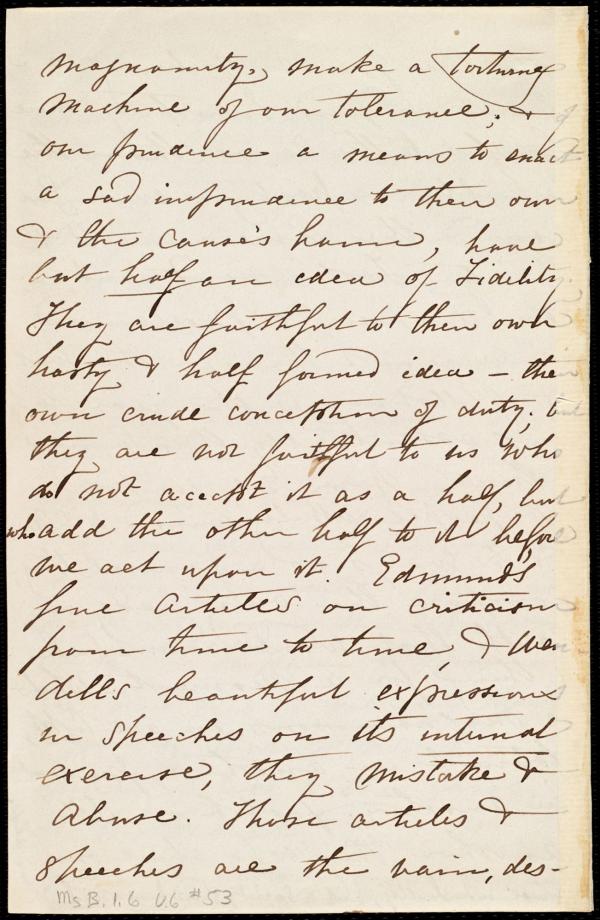 magnanimity, make a torturing
machine of our tolerance; &
our prudence a means to enact
a sad imprudence to their own
& the Cause's harm, have
but half an idea of Fidelity.
They are faithful to their own
hasty & half formed idea – their
own crude conception of duty; but
they are not faithful to us who
do not accept it as a half, but
who add the other half to it before
we act upon it. Edmund's
fine articles on criticism
from time to time, & Wen-
dell's beautiful expressions
in speeches on its internal
exercise, they mistake &
abuse. Those articles &
speeches are the vain, des-
Ms B. 1. 6 v. 6 #53